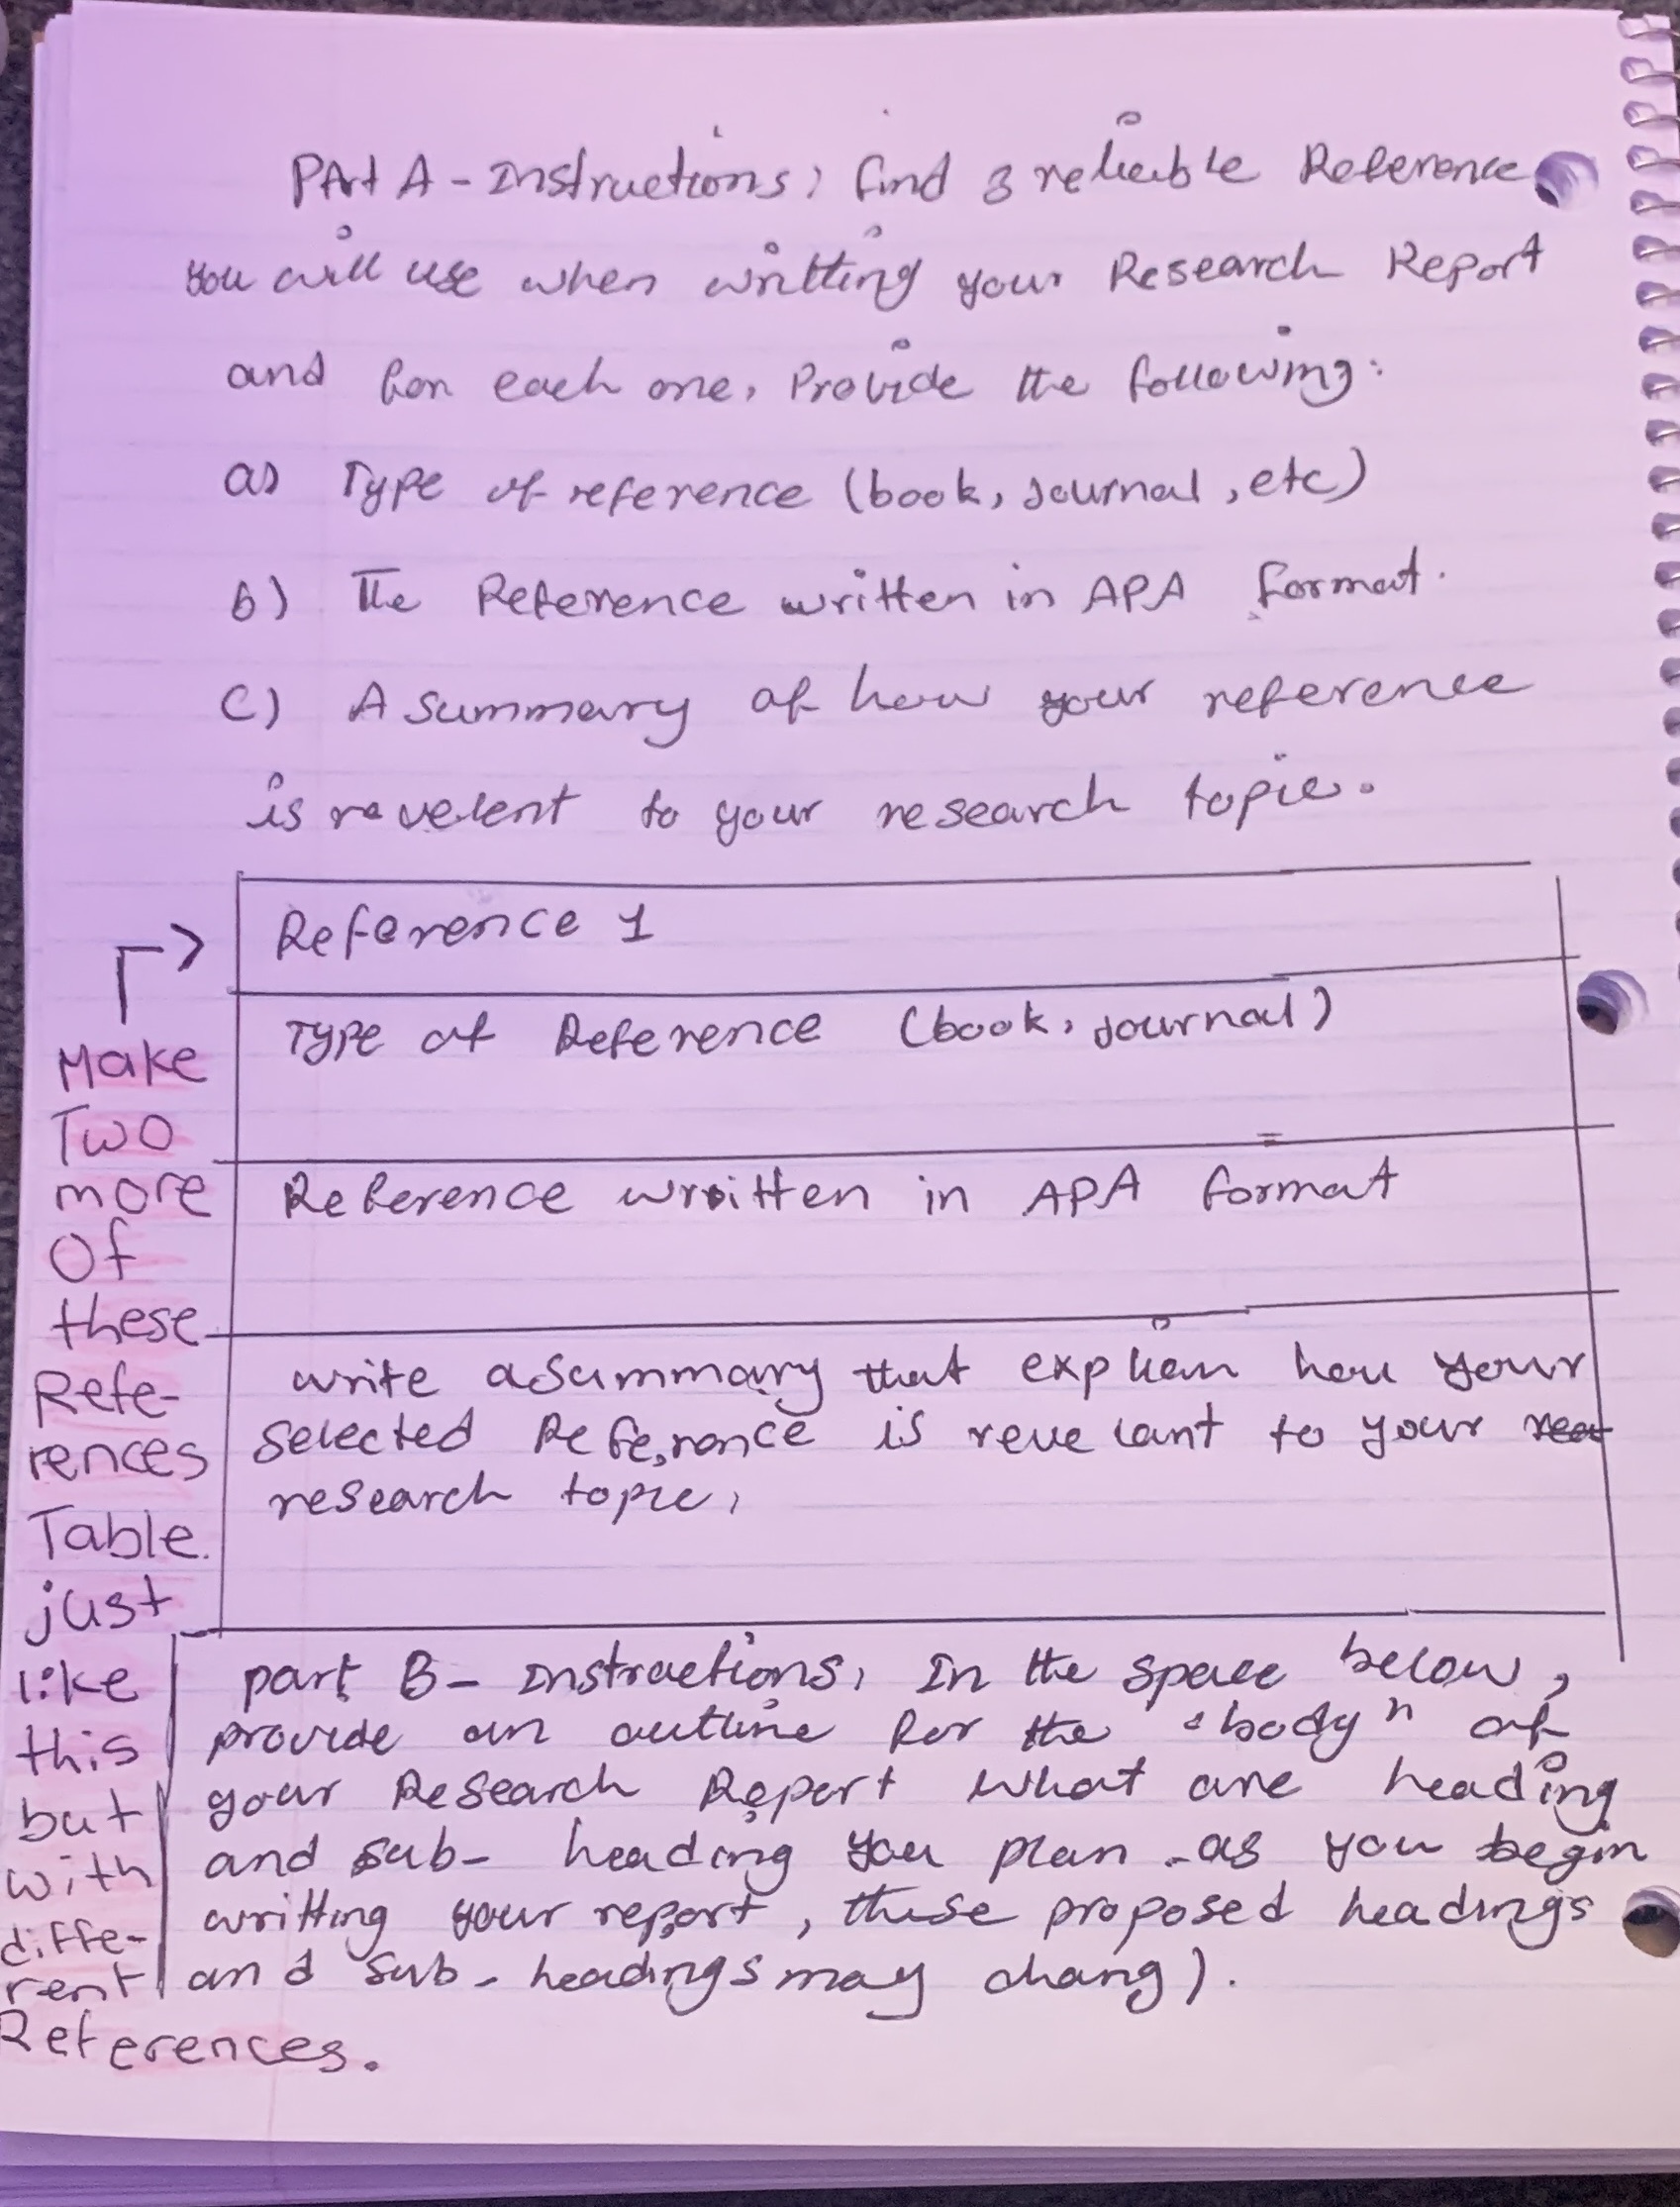 PArt A - Instructions, find 3 relieble Reference
you will use when writting your Research Report
and for each one, Provide the following:
a) Type of reference (book, Journal, etc)
b) The Reference written in APA format.
C) A summary of how your reference
is revelent to your research topic.
Reference 1
Type of Reference (book, Journal)
Reference written in APA format
write a summary that explien how your
selected Reference is revelant to your
research topic,
Make
Two
more
Of
these
Refe-
rences
Table.
just
like
this
but
with
diffe-
rent
References.
part B - Instructions, In the space below,
provide an outline for the "body" of
your Research Report what are heading
and sub- heading you plan - as you begin
writting your report, these proposed headings
and sub- headings may chang).